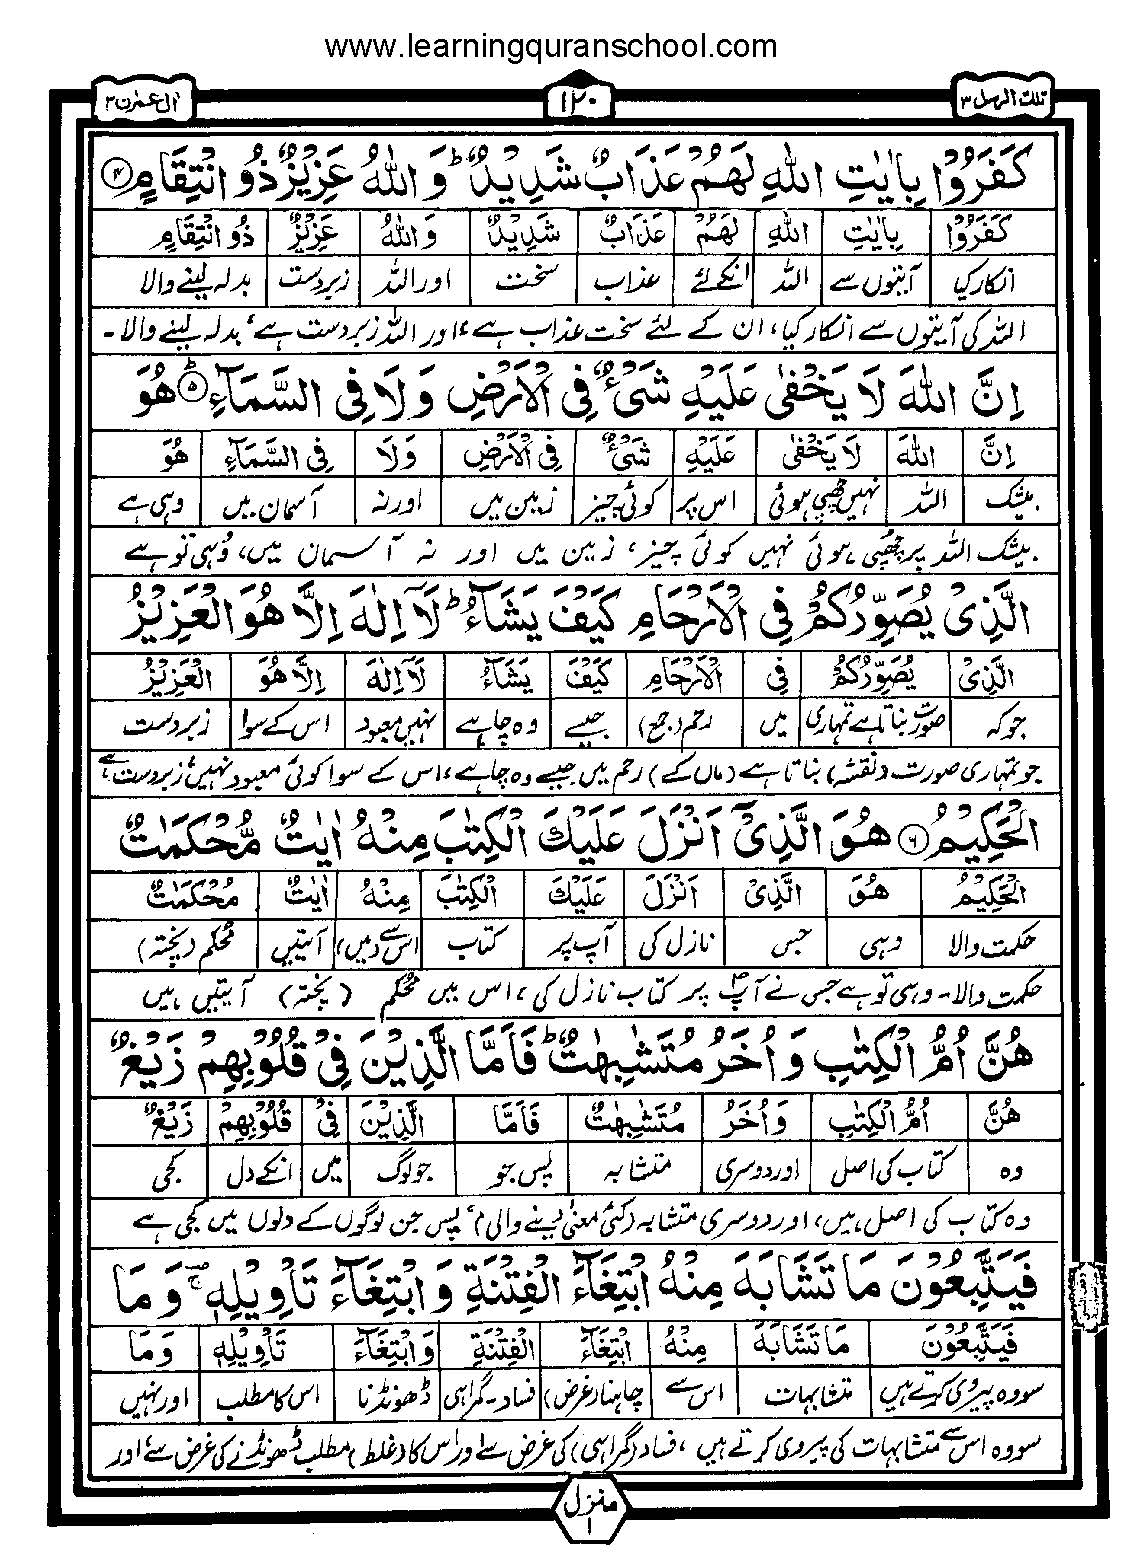 www.learningquranschool.com
تلك الرسل ٣ ١٢٠ اٰل عمرٰن ٣
كَفَرُوْا بِاٰيٰتِ اللّٰهِ لَهُمْ عَذَابٌ شَدِيْدٌ ؕ وَ اللّٰهُ عَزِيْزٌ ذُو انْتِقَامٍ ۴
كَفَرُوْا بِاٰيٰتِ اللّٰهِ لَهُمْ عَذَابٌ شَدِيْدٌ وَاللّٰهُ عَزِيْزٌ ذُو انْتِقَامٍ
انکار کیا آیتوں سے اللہ انکے لئے عذاب سخت اور اللہ زبردست بدلہ لینے والا
اللہ کی آیتوں سے انکار کیا، ان کے لئے سخت عذاب ہے، اور اللہ زبردست ہے، بدلہ لینے والا۔
اِنَّ اللّٰهَ لَا يَخْفٰى عَلَيْهِ شَیْءٌ فِی الْاَرْضِ وَ لَا فِی السَّمَآءِ ؕ ۵ هُوَ
اِنَّ اللّٰهَ لَا يَخْفٰى عَلَيْهِ شَیْءٌ فِی الْاَرْضِ وَلَا فِی السَّمَآءِ هُوَ
بیشک اللہ نہیں چھپی ہوئی اس پر کوئی چیز زمین میں اور نہ آسمان میں وہی ہے
بیشک اللہ پر چھپی ہوئی نہیں کوئی چیز، زمین میں اور نہ آسمان میں، وُہی تو ہے
الَّذِیْ يُصَوِّرُكُمْ فِی الْاَرْحَامِ كَيْفَ يَشَآءُ ؕ لَاۤ اِلٰهَ اِلَّا هُوَ الْعَزِيْزُ
الَّذِیْ يُصَوِّرُكُمْ فِی الْاَرْحَامِ كَيْفَ يَشَآءُ لَاۤ اِلٰهَ اِلَّا هُوَ الْعَزِيْزُ
جو کہ صورت بناتا ہے تمہاری میں رحم (جمع) جیسے وہ چاہے نہیں معبود اس کے سوا زبردست
جو تمہاری صورت (نقشہ) بناتا ہے (ماں کے) رحم میں جیسے وہ چاہے، اس کے سوا کوئی معبود نہیں، زبردست ہے
الْحَكِيْمُ ۶ هُوَ الَّذِیْۤ اَنْزَلَ عَلَيْكَ الْكِتٰبَ مِنْهُ اٰيٰتٌ مُّحْكَمٰتٌ
الْحَكِيْمُ هُوَ الَّذِیْ اَنْزَلَ عَلَيْكَ الْكِتٰبَ مِنْهُ اٰيٰتٌ مُحْكَمٰتٌ
حکمت والا وہی جس نازل کی آپ پر کتاب اس سے (میں) آیتیں محکم (پختہ)
حکمت والا۔ وہی تو ہے جس نے آپؐ پر کتاب نازل کی، اس میں مُحکم (پختہ) آیتیں ہیں
هُنَّ اُمُّ الْكِتٰبِ وَ اُخَرُ مُتَشٰبِهٰتٌ ؕ فَاَمَّا الَّذِيْنَ فِیْ قُلُوْبِهِمْ زَيْغٌ
هُنَّ اُمُّ الْكِتٰبِ وَ اُخَرُ مُتَشٰبِهٰتٌ فَاَمَّا الَّذِيْنَ فِیْ قُلُوْبِهِمْ زَيْغٌ
وہ کتاب کی اصل اور دوسری متشابہ پس جو جو لوگ میں انکے دل کجی
وہ کتاب کی اصل ہیں، اور دوسری متشابہ (کئی معنی دینے والی)، پس جن لوگوں کے دلوں میں کجی ہے
فَيَتَّبِعُوْنَ مَا تَشَابَهَ مِنْهُ ابْتِغَآءَ الْفِتْنَةِ وَ ابْتِغَآءَ تَاْوِيْلِهٖ وَ مَا
فَيَتَّبِعُوْنَ مَا تَشَابَهَ مِنْهُ ابْتِغَآءَ الْفِتْنَةِ وَ ابْتِغَآءَ تَاْوِيْلِهٖ وَ مَا
سو وہ پیروی کرتے ہیں متشابہات اس سے چاہنا (غرض) فساد۔ گمراہی ڈھونڈنا اس کا مطلب اور نہیں
سو وہ اس سے متشابہات کی پیروی کرتے ہیں، فساد (گمراہی) کی غرض سے اور اس کا (غلط) مطلب ڈھونڈنے کی غرض سے، اور
منزل ١